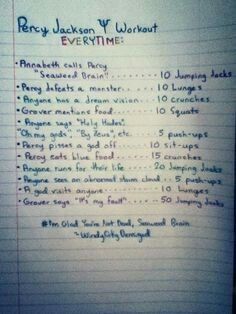 Percy Jackson Ψ Workout
EVERYTIME:
• Annabeth calls Percy
"Seaweed Brain" ........ 10 Jumping Jacks
• Percy defeats a monster... 10 Lunges
• Anyone has a dream vision... 10 crunches
• Grover mentions food ..... 10 Squats
• Anyone says "Holy Hades",
"Oh my gods", "By Zeus", etc. ... 5 push-ups
• Percy pisses a god off ..... 10 sit-ups
• Percy eats blue food ..... 15 crunches
• Anyone runs for their life .... 20 Jumping Jacks
• Anyone sees an abnormal storm cloud .. 5 push-ups
• A god visits anyone ...... 10 Lunges
• Grover says "It's my fault" ..... 50 Jumping Jacks
#I'm Glad You're Not Dead, Seaweed Brain
~WindyCityDemigod